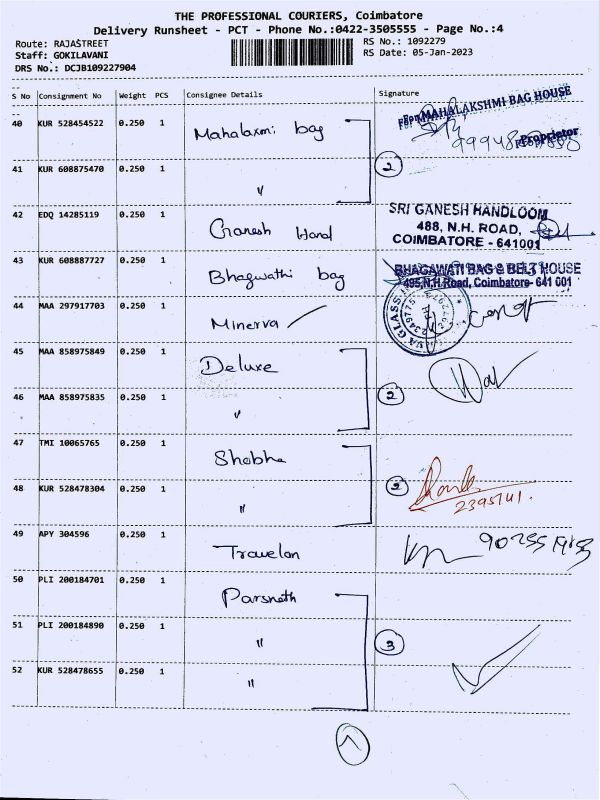 THE PROFESSIONAL COURIERS, Coimbatore
Delivery Runsheet - PCT - Phone No.:0422-3505555 - Page No.:4
Route: RAJASTREET
Staff: GOKILAVANI
DRS No.: DCJB109227904
RS No.: 1092279
RS Date: 05-Jan-2023
S No Consignment No Weight PCS Consignee Details Signature
40 KUR 528454522 0.250 1 Mahalaxmi bag
For MAHALAKSHMI BAG HOUSE
Proprietor
41 KUR 608875470 0.250 1 "
2
42 EDQ 14285119 0.250 1 Ganesh Hand
SRI GANESH HANDLOOM
488, N.H. ROAD,
COIMBATORE - 641001
43 KUR 608887727 0.250 1 Bhagwathi bag
BHAGAWATI BAG & BELT HOUSE
495, N.H.Road, Coimbatore- 641 001
44 MAA 297917703 0.250 1 Minerva
45 MAA 858975849 0.250 1 Deluxe
46 MAA 858975835 0.250 1 "
2
47 TMI 10065765 0.250 1 Shobha
48 KUR 528478304 0.250 1 "
2
2395141.
49 APY 304596 0.250 1 Travelon
50 PLI 200184701 0.250 1 Parsnath
51 PLI 200184890 0.250 1 "
3
52 KUR 528478655 0.250 1 "